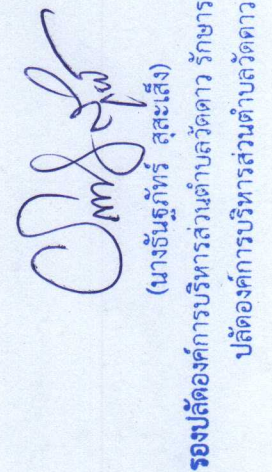 (นางธันฐภัทร์ สุสะเส็ง)
รองปลัดองค์การบริหารส่วนตำบลวัดดาว รักษาราช
ปลัดองค์การบริหารส่วนตำบลวัดดาว